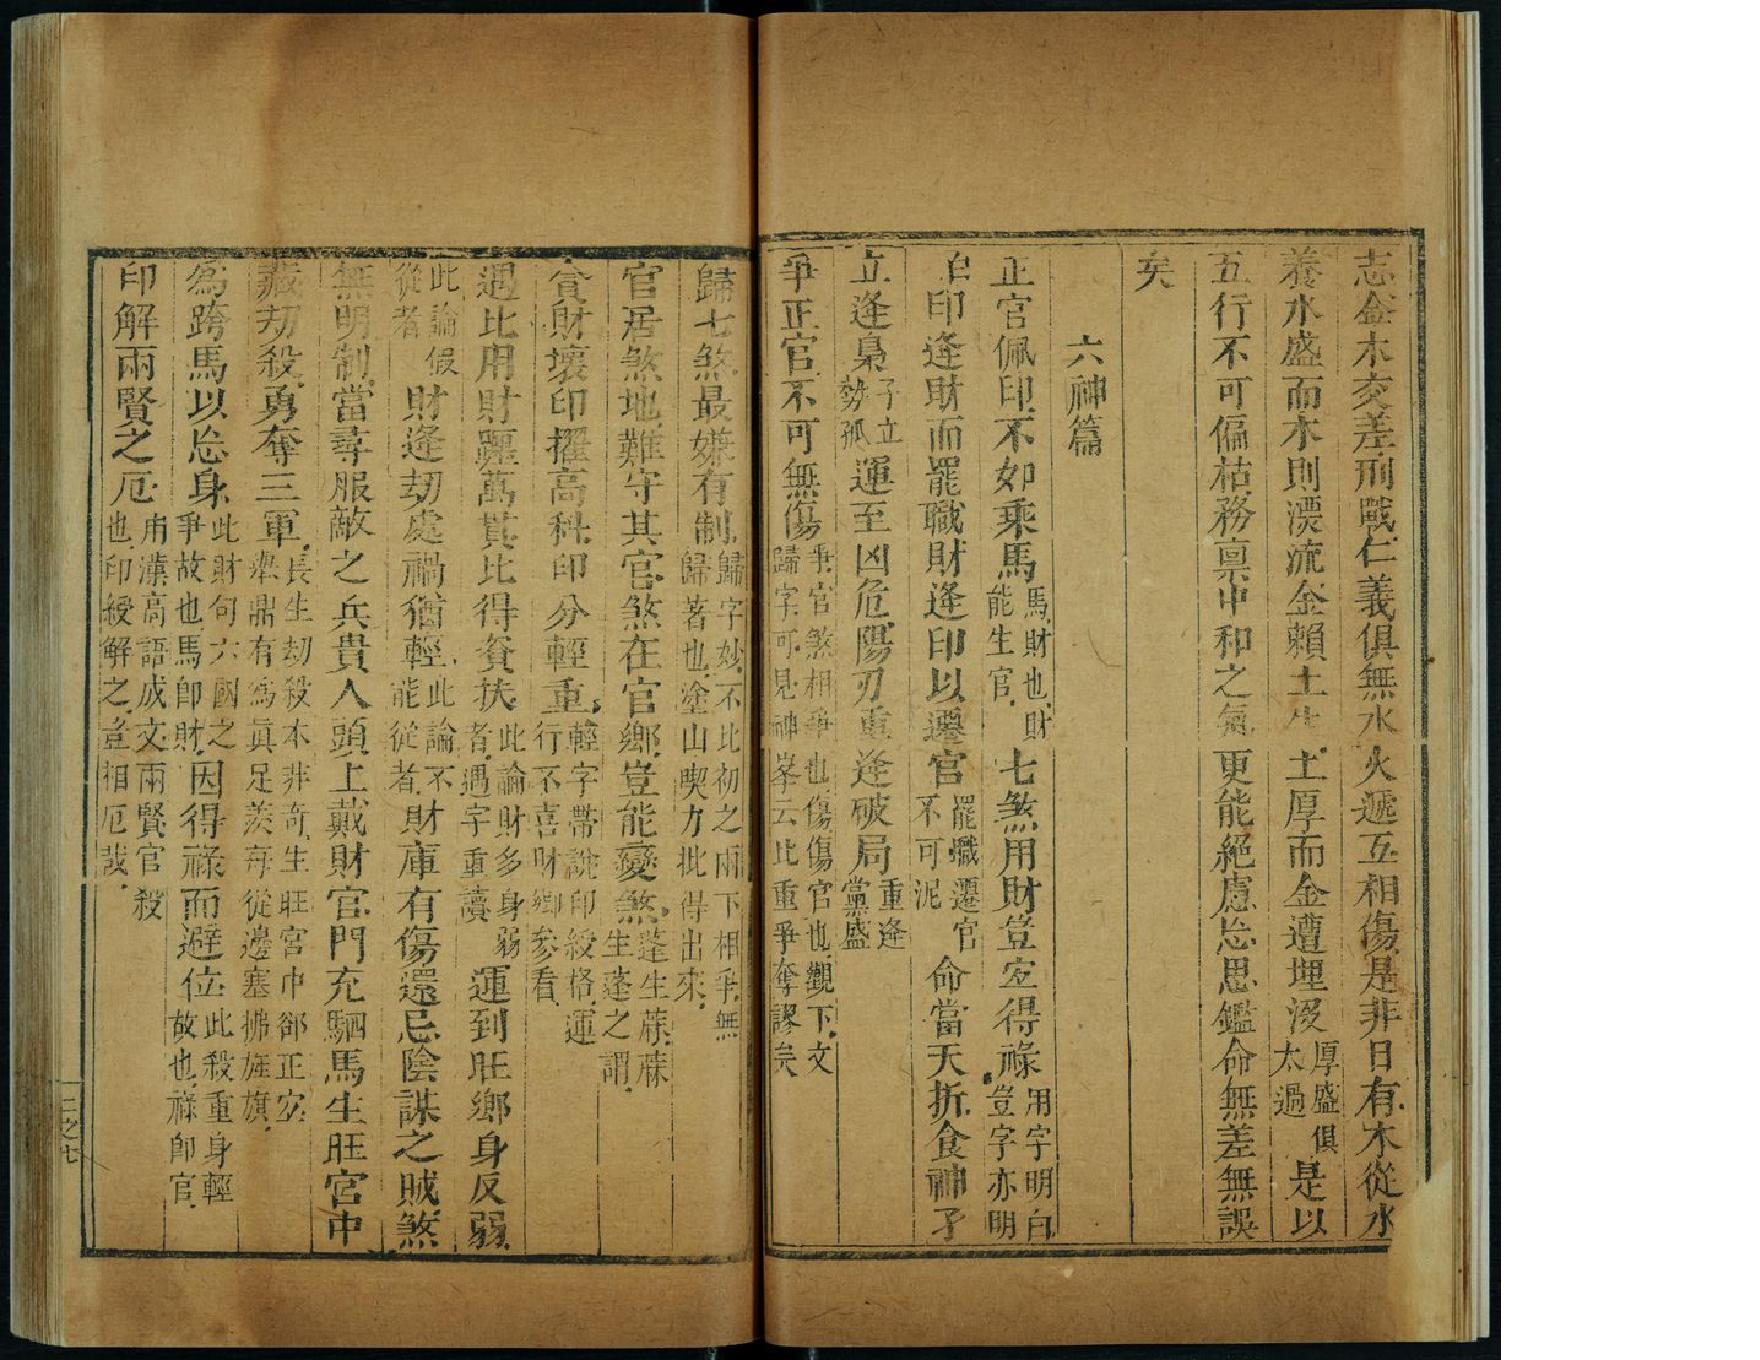 志金木交差刑戰仁義俱無水火遞互相傷是非日有木從水
養水盛而木則漂流金賴土生土厚而金遭埋沒厚盛俱太過是以
五行不可偏枯務禀中和之氣更能絕慮忘思鑑命無差無誤
矣
六神篇
正官佩印不如乘馬馬財也財能生官七煞用財豈宜得祿用字明白豈字亦明
白印逢財而罷職財逢印以遷官罷職遷官不可泥命當夭折食神孑
立逢梟孑立勢孤運至凶危陽刃重逢破局重逢黨盛
爭正官不可無傷爭官煞相爭也傷傷官也觀下文歸字可見神峯云此重爭奪謬矣
歸七煞最嫌有制歸字妙不比初之兩下相爭無歸著也塗山喫力批得出來
官居煞地難守其官煞在官鄉豈能變煞蓬生蔴蔴生蓬之謂
貪財壞印擢高科印分輕重輕字帶說印綬格運行不喜財鄉參看
遇比用財躔萬貫比得資扶此論財多身弱者遇字重讀運到旺鄉身反弱
此論假從者財逢劫處禍猶輕此論不能從者財庫有傷還忌陰謀之賊煞
無明制當尋服敵之兵貴人頭上戴財官門充駟馬生旺宮中
藏劫殺勇奪三軍長生劫殺本非奇生旺宮中郤正宜鼎有爲眞足羨每從邊塞擁旌旗
爲跨馬以忘身此財句六國之爭故也馬卽財因得祿而避位此殺重身輕故也祿卽官
印解兩賢之厄用漢高語成文兩賢官殺也印綬解之豈相厄哉
二之七